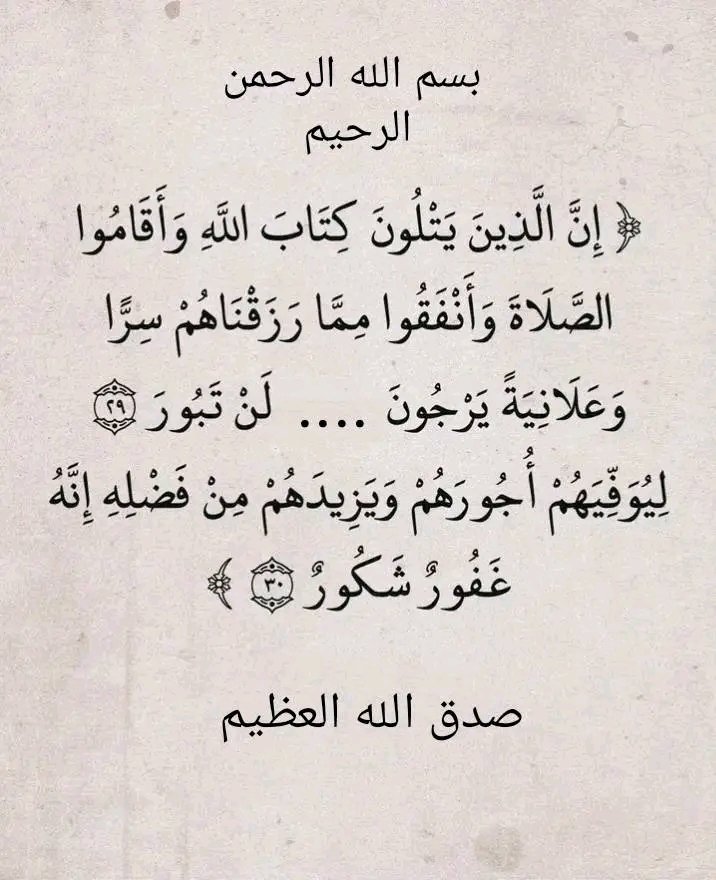 بسم الله الرحمن
الرحيم
﴿ إِنَّ الَّذِينَ يَتْلُونَ كِتَابَ اللَّهِ وَأَقَامُوا
الصَّلَاةَ وَأَنْفَقُوا مِمَّا رَزَقْنَاهُمْ سِرًّا
وَعَلَانِيَةً يَرْجُونَ .... لَنْ تَبُورَ ٢٩
لِيُوَفِّيَهُمْ أُجُورَهُمْ وَيَزِيدَهُمْ مِنْ فَضْلِهِ إِنَّهُ
غَفُورٌ شَكُورٌ ٣٠ ﴾
صدق الله العظيم